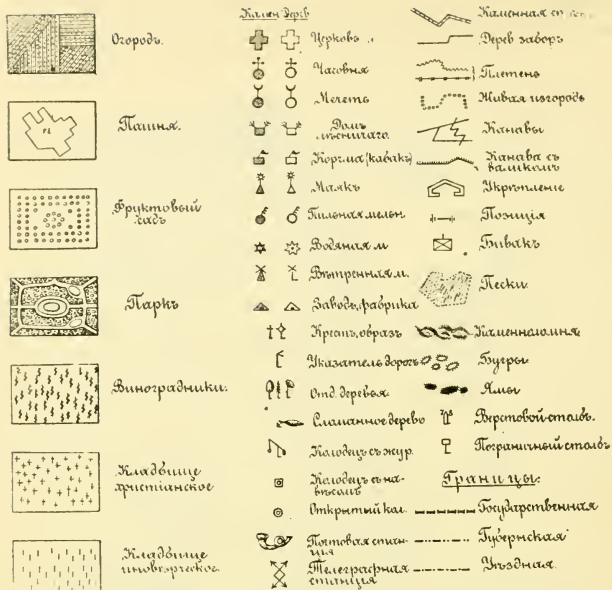 Огородъ.
Пашня.
Фруктовый
садъ
Паркъ
Виноградники.
Кладвище
христіанское
Кладвище
иновѣрческое.
Камен Дерев
Церковь
Часовня
Мечеть
Домъ
лѣсничаго.
Корчма (кабакъ)
Маякъ
Пильная мельн
Водяная м
Вѣтренная м.
Заводъ, фабрика
Крестъ, образъ
Указатель дорогъ
Отд. деревья
Сломанное дерево
Колодецъ съ жур.
Колодецъ съ на-
вѣсомъ
Открытый кол.
Почтовая стан-
ція
Телеграфная
станція
Каменная
Дерев заборъ
Плетень
Живая изгородь
Канавы
Канава съ
валикомъ
Укрѣпленіе
Позиція
Бивакъ
Пески
Каменноломня
Бугры
Ямы
Верстовой столбъ.
Пограничный столбъ
Границы:
Государственная
Губернская
Уѣздная.